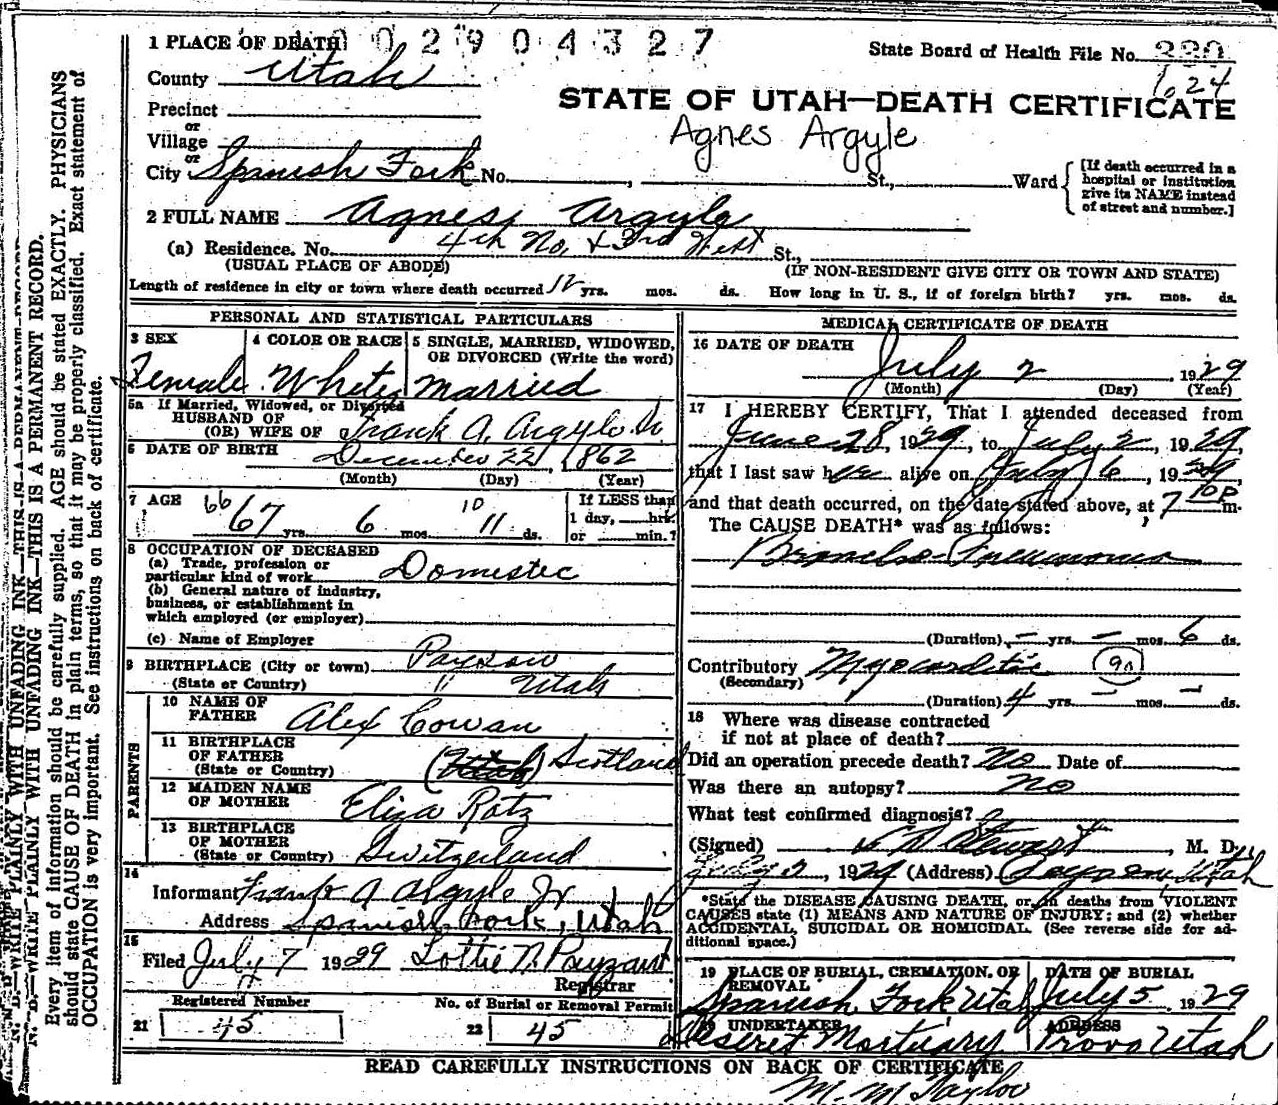 1 PLACE OF DEATH 1 0 0 2 9 0 4 3 2 7
State Board of Health File No. 330
624
County Utah
STATE OF UTAH—DEATH CERTIFICATE
Precinct
or
Agnes Argyle
Village
or
City Spanish Fork No. , St., Ward
[If death occurred in a
hospital or institution
give its NAME instead
of street and number.]
2 FULL NAME Agnes Argyle
(a) Residence. No. 4th No. & 3rd West St.,
(USUAL PLACE OF ABODE) (IF NON-RESIDENT GIVE CITY OR TOWN AND STATE)
Length of residence in city or town where death occurred 12 yrs. mos. ds. How long in U. S., if of foreign birth? yrs. mos. ds.
PERSONAL AND STATISTICAL PARTICULARS
3 SEX 4 COLOR OR RACE 5 SINGLE, MARRIED, WIDOWED,
OR DIVORCED (Write the word)
Female White Married
5a If Married, Widowed, or Divorced
HUSBAND OF
(OR) WIFE OF Frank A. Argyle Sr
6 DATE OF BIRTH December 22, 1862
(Month) (Day) (Year)
7 AGE 66 67 yrs. 6 mos. 10 11 ds.
If LESS than
1 day, hrs.
or min.?
8 OCCUPATION OF DECEASED
(a) Trade, profession or
particular kind of work Domestic
(b) General nature of industry,
business, or establishment in
which employed (or employer)
(c) Name of Employer
9 BIRTHPLACE (City or town) Payson
(State or Country) " Utah
PARENTS
10 NAME OF
FATHER Alex Cowan
11 BIRTHPLACE
OF FATHER (Utah) Scotland
(State or Country)
12 MAIDEN NAME
OF MOTHER Eliza Rotz
13 BIRTHPLACE
OF MOTHER
(State or Country) Switzerland
14
Informant Frank A Argyle Jr
Address Spanish Fork, Utah
15
Filed July 7 1929 Lottie N. Payzant
Registrar
Registered Number No. of Burial or Removal Permit
21 45 22 45
MEDICAL CERTIFICATE OF DEATH
16 DATE OF DEATH
July 2, 1929
(Month) (Day) (Year)
17 I HEREBY CERTIFY, That I attended deceased from
June 28, 1929, to July 2, 1929,
that I last saw her alive on July 6, 1929
and that death occurred, on the date stated above, at 7 10 P m.
The CAUSE DEATH* was as follows:
Broncho Pneumonia
(Duration) – yrs. – mos. 6 ds.
Contributory Myocarditis 90
(Secondary)
(Duration) 4 yrs. – mos. – ds.
18 Where was disease contracted
if not at place of death?
Did an operation precede death? No Date of
Was there an autopsy? No
What test confirmed diagnosis?
(Signed) Stewart, M. D.,
July 2, 1929 (Address) Payson, Utah
*State the DISEASE CAUSING DEATH, or, in deaths from VIOLENT
CAUSES state (1) MEANS AND NATURE OF INJURY; and (2) whether
ACCIDENTAL, SUICIDAL OR HOMICIDAL. (See reverse side for ad-
ditional space.)
19 PLACE OF BURIAL, CREMATION, OR DATH OF BURIAL
REMOVAL
Spanish Fork Utah July 5 1929
UNDERTAKER ADDRESS
Deseret Mortuary Provo Utah
READ CAREFULLY INSTRUCTIONS ON BACK OF CERTIFICATE
M. M Taylor
N. B.—WRITE PLAINLY WITH UNFADING INK—THIS IS A PERMANENT RECORD.
Every item of information should be carefully supplied. AGE should be stated EXACTLY. PHYSICIANS
should state CAUSE OF DEATH in plain terms, so that it may be properly classified. Exact statement of
OCCUPATION is very important. See instructions on back of certificate.